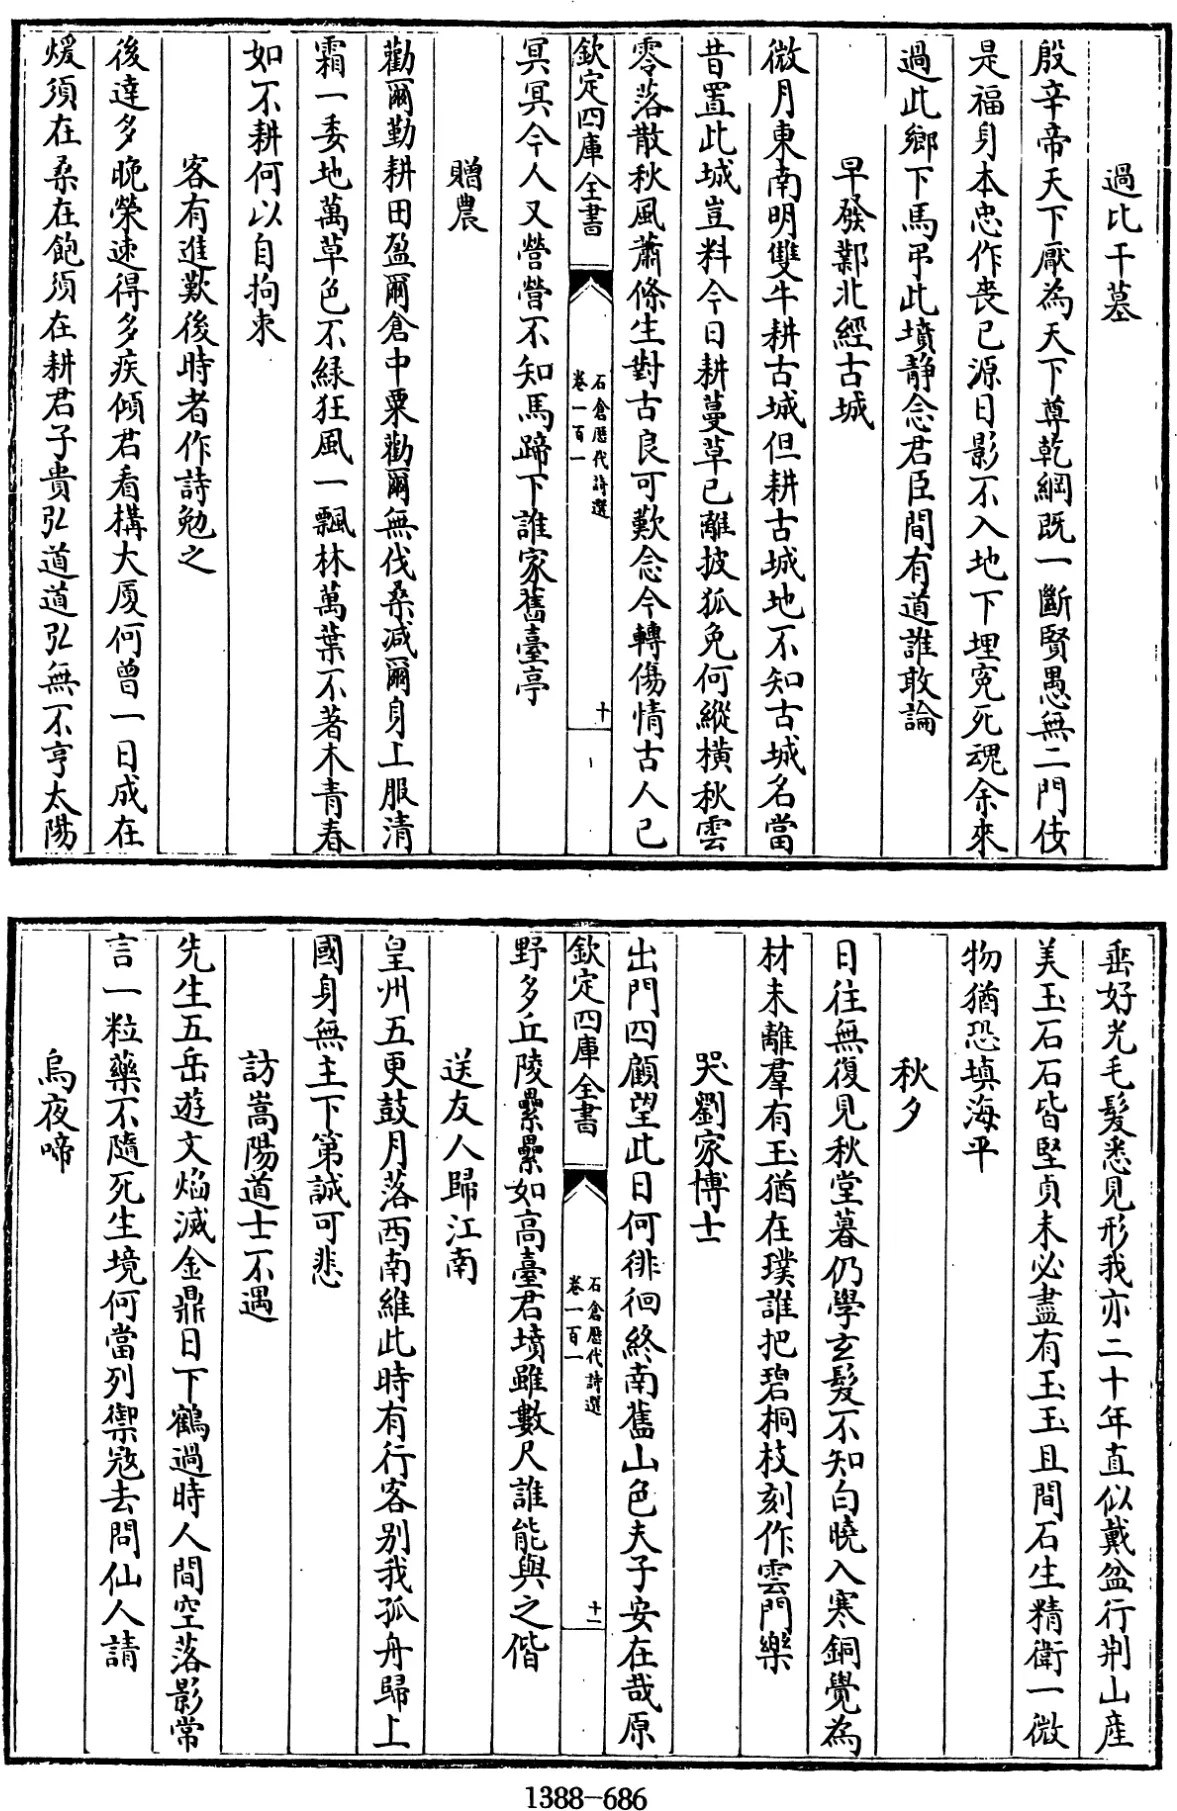 過比干墓
殷辛帝天下厭為天下尊乾綱既一斷賢愚無二門佞
是福身本忠作喪已源日影不入地下埋冤死魂余來
過此鄉下馬弔此墳靜念君臣間有道誰敢論
早發鄴北經古城
微月東南明雙牛耕古城但耕古城地不知古城名當
昔置此城豈料今日耕蔓草已離披狐兔何縱橫秋雲
零落散秋風蕭條生對古良可歎念今轉傷情古人已
欽定四庫全書
石倉歷代詩選
卷一百一
十
冥冥今人又營營不知馬蹄下誰家舊臺亭
贈農
勸爾勤耕田盈爾倉中粟勸爾無伐桑減爾身上服清
霜一委地萬草色不綠狂風一飄林萬葉不著木青春
如不耕何以自拘束
客有進歎後時者作詩勉之
後達多晚榮速得多疾傾君看構大厦何曾一日成在
煖須在桑在飽須在耕君子貴弘道道弘無不亨太陽
垂好光毛髮悉見形我亦二十年直似戴盆行荆山產
美玉石石皆堅貞未必盡有玉玉且間石生精衛一微
物猶恐填海平
秋夕
日往無復見秋堂暮仍學玄髮不知白曉入寒銅覺為
材未離羣有玉猶在璞誰把碧桐枝刻作雲門樂
哭劉家博士
出門四顧望此日何徘徊終南舊山色夫子安在哉原
欽定四庫全書
石倉歷代詩選
卷一百一
十一
野多丘陵纍纍如高臺君墳雖數尺誰能與之偕
送友人歸江南
皇州五更鼓月落西南維此時有行客别我孤舟歸上
國身無主下第誠可悲
訪嵩陽道士不遇
先生五岳遊文焰滅金鼎日下鶴過時人間空落影常
言一粒藥不隨死生境何當列禦寇去問仙人請
烏夜啼
1388—686